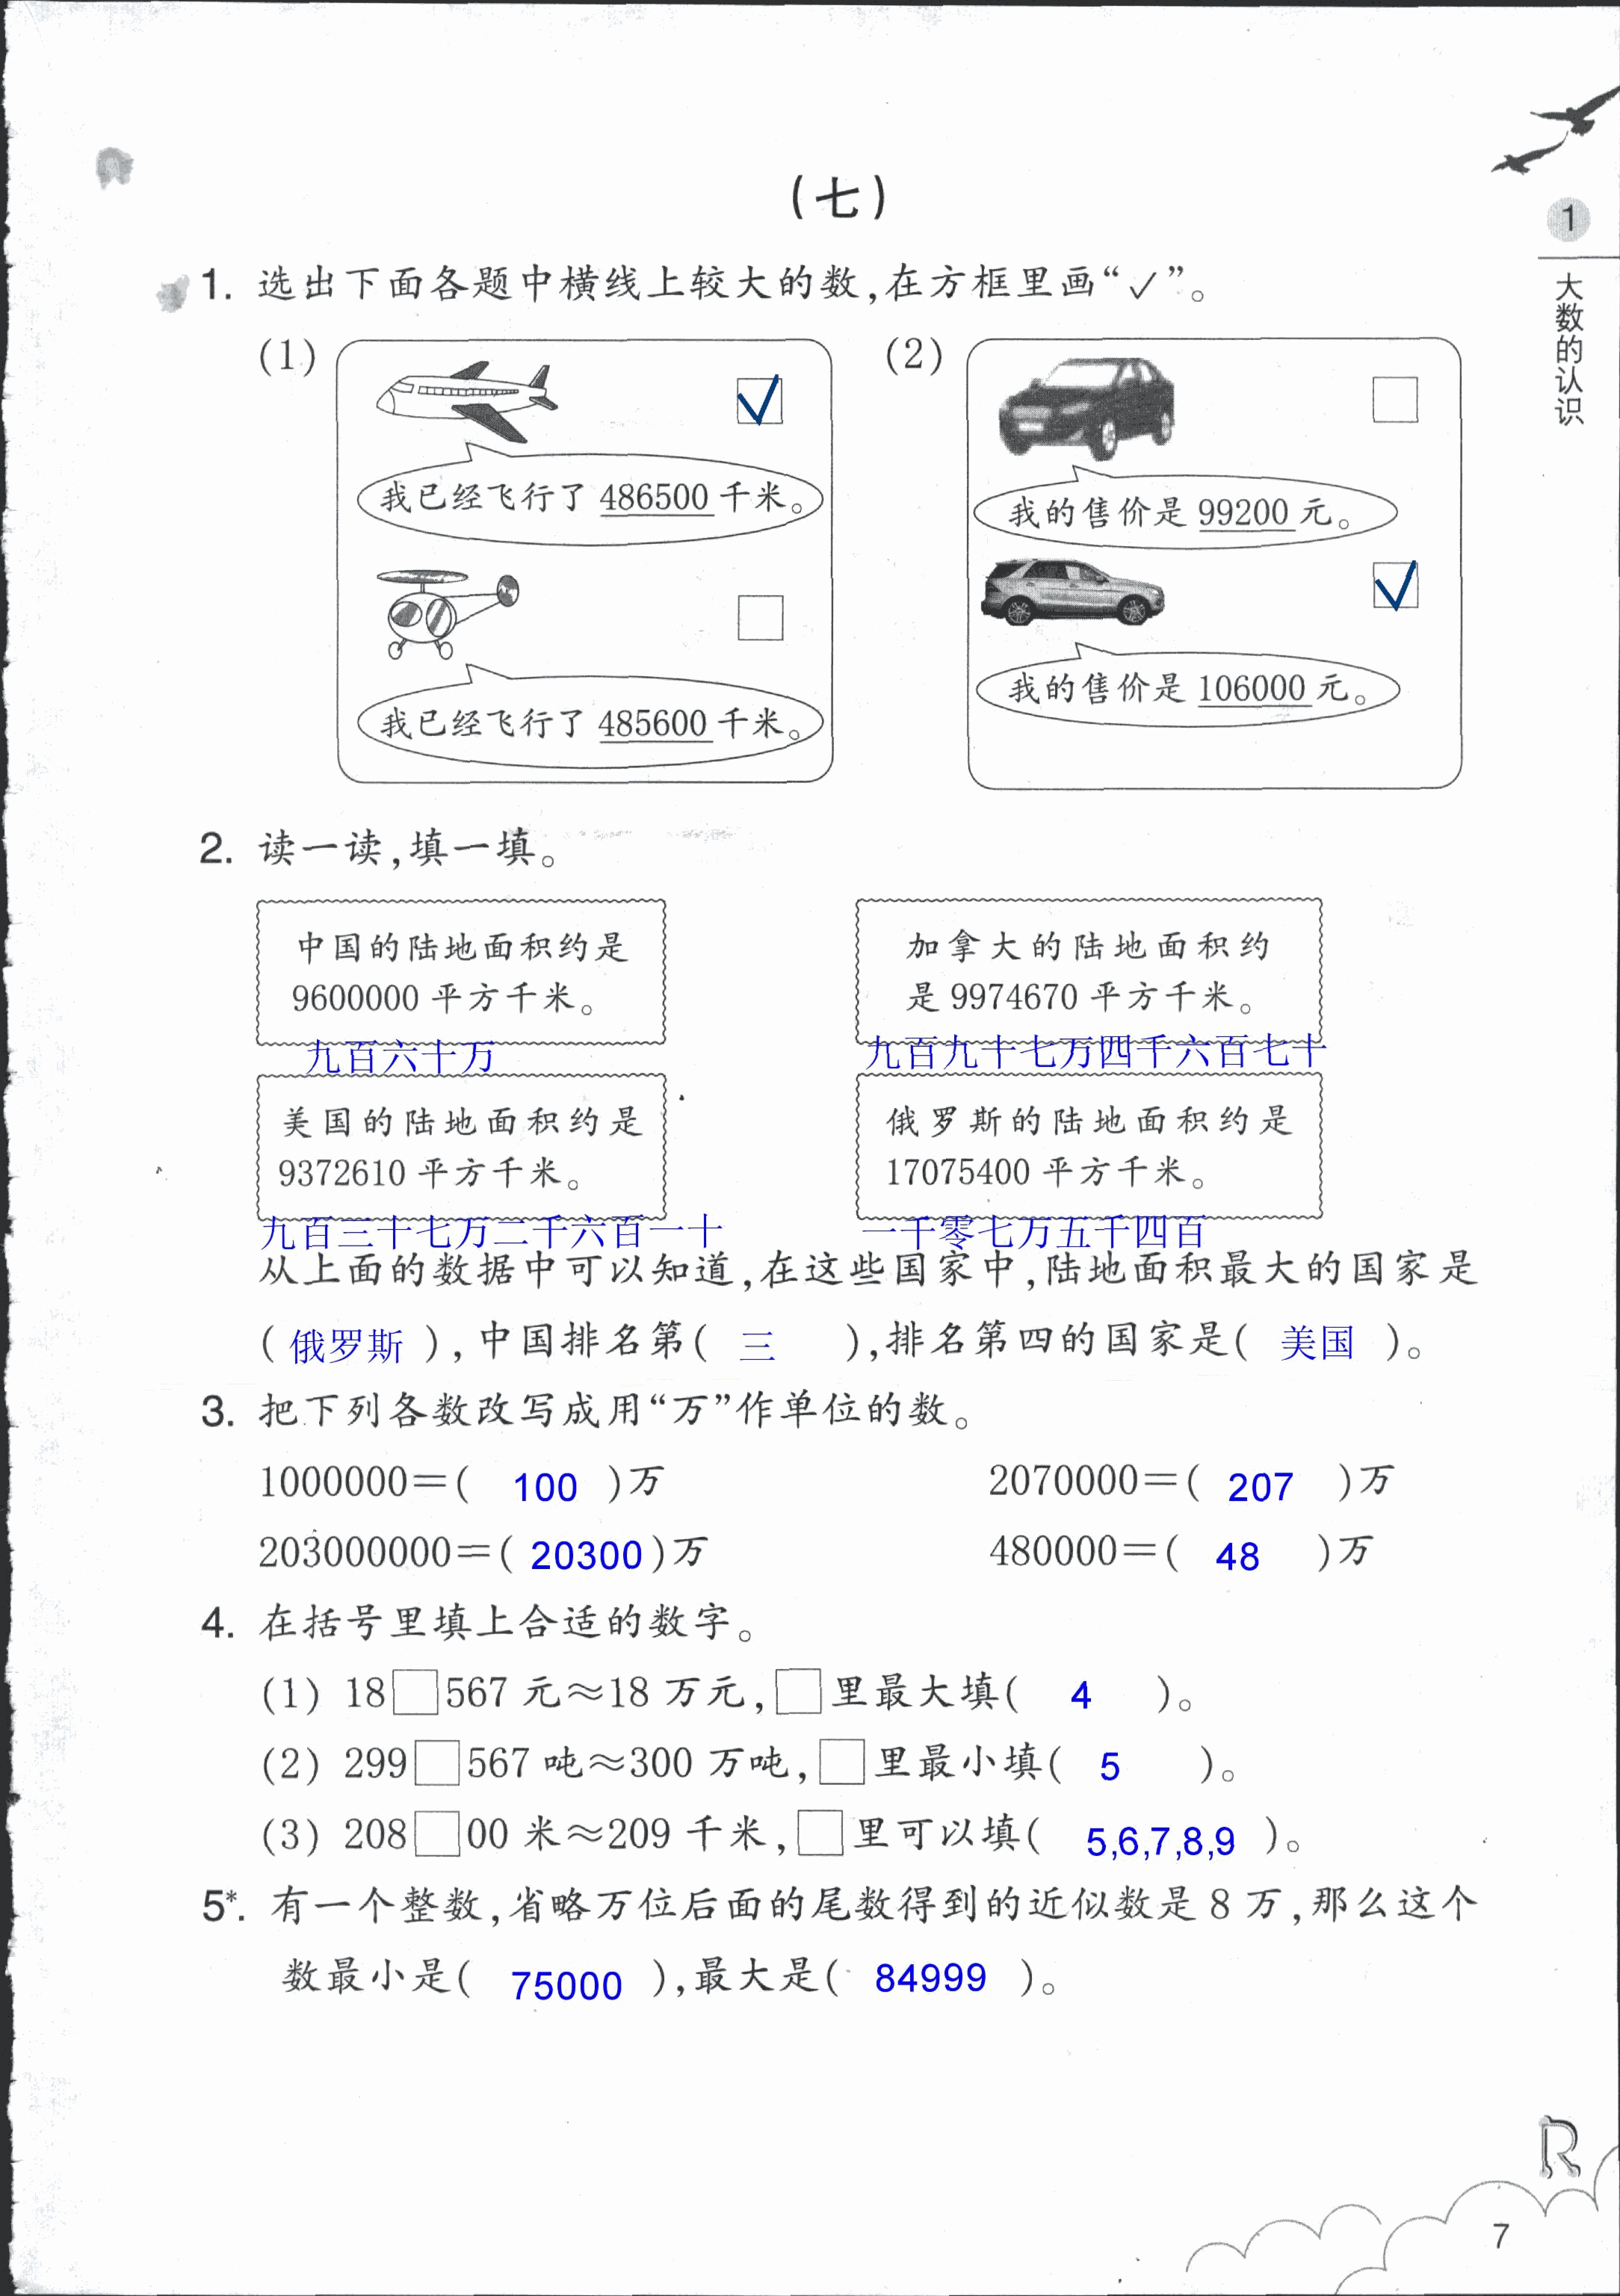 (七)
1
大数的认识
1. 选出下面各题中横线上较大的数,在方框里画“✓”。
(1)
✓
我已经飞行了 486500 千米。
我已经飞行了 485600 千米。
(2)
我的售价是 99200 元。
✓
我的售价是 106000 元。
2. 读一读,填一填。
中国的陆地面积约是
9600000 平方千米。
九百六十万
加拿大的陆地面积约
是 9974670 平方千米。
九百九十七万四千六百七十
美国的陆地面积约是
9372610 平方千米。
九百三十七万二千六百一十
俄罗斯的陆地面积约是
17075400 平方千米。
一千零七万五千四百
从上面的数据中可以知道,在这些国家中,陆地面积最大的国家是
( 俄罗斯 ),中国排名第( 三 ),排名第四的国家是( 美国 )。
3. 把下列各数改写成用“万”作单位的数。
1000000=( 100 )万 2070000=( 207 )万
203000000=( 20300 )万 480000=( 48 )万
4. 在括号里填上合适的数字。
(1) 18□567 元≈18 万元,□里最大填( 4 )。
(2) 299□567 吨≈300 万吨,□里最小填( 5 )。
(3) 208□00 米≈209 千米,□里可以填( 5,6,7,8,9 )。
5*. 有一个整数,省略万位后面的尾数得到的近似数是 8 万,那么这个
数最小是( 75000 ),最大是( 84999 )。
R
7